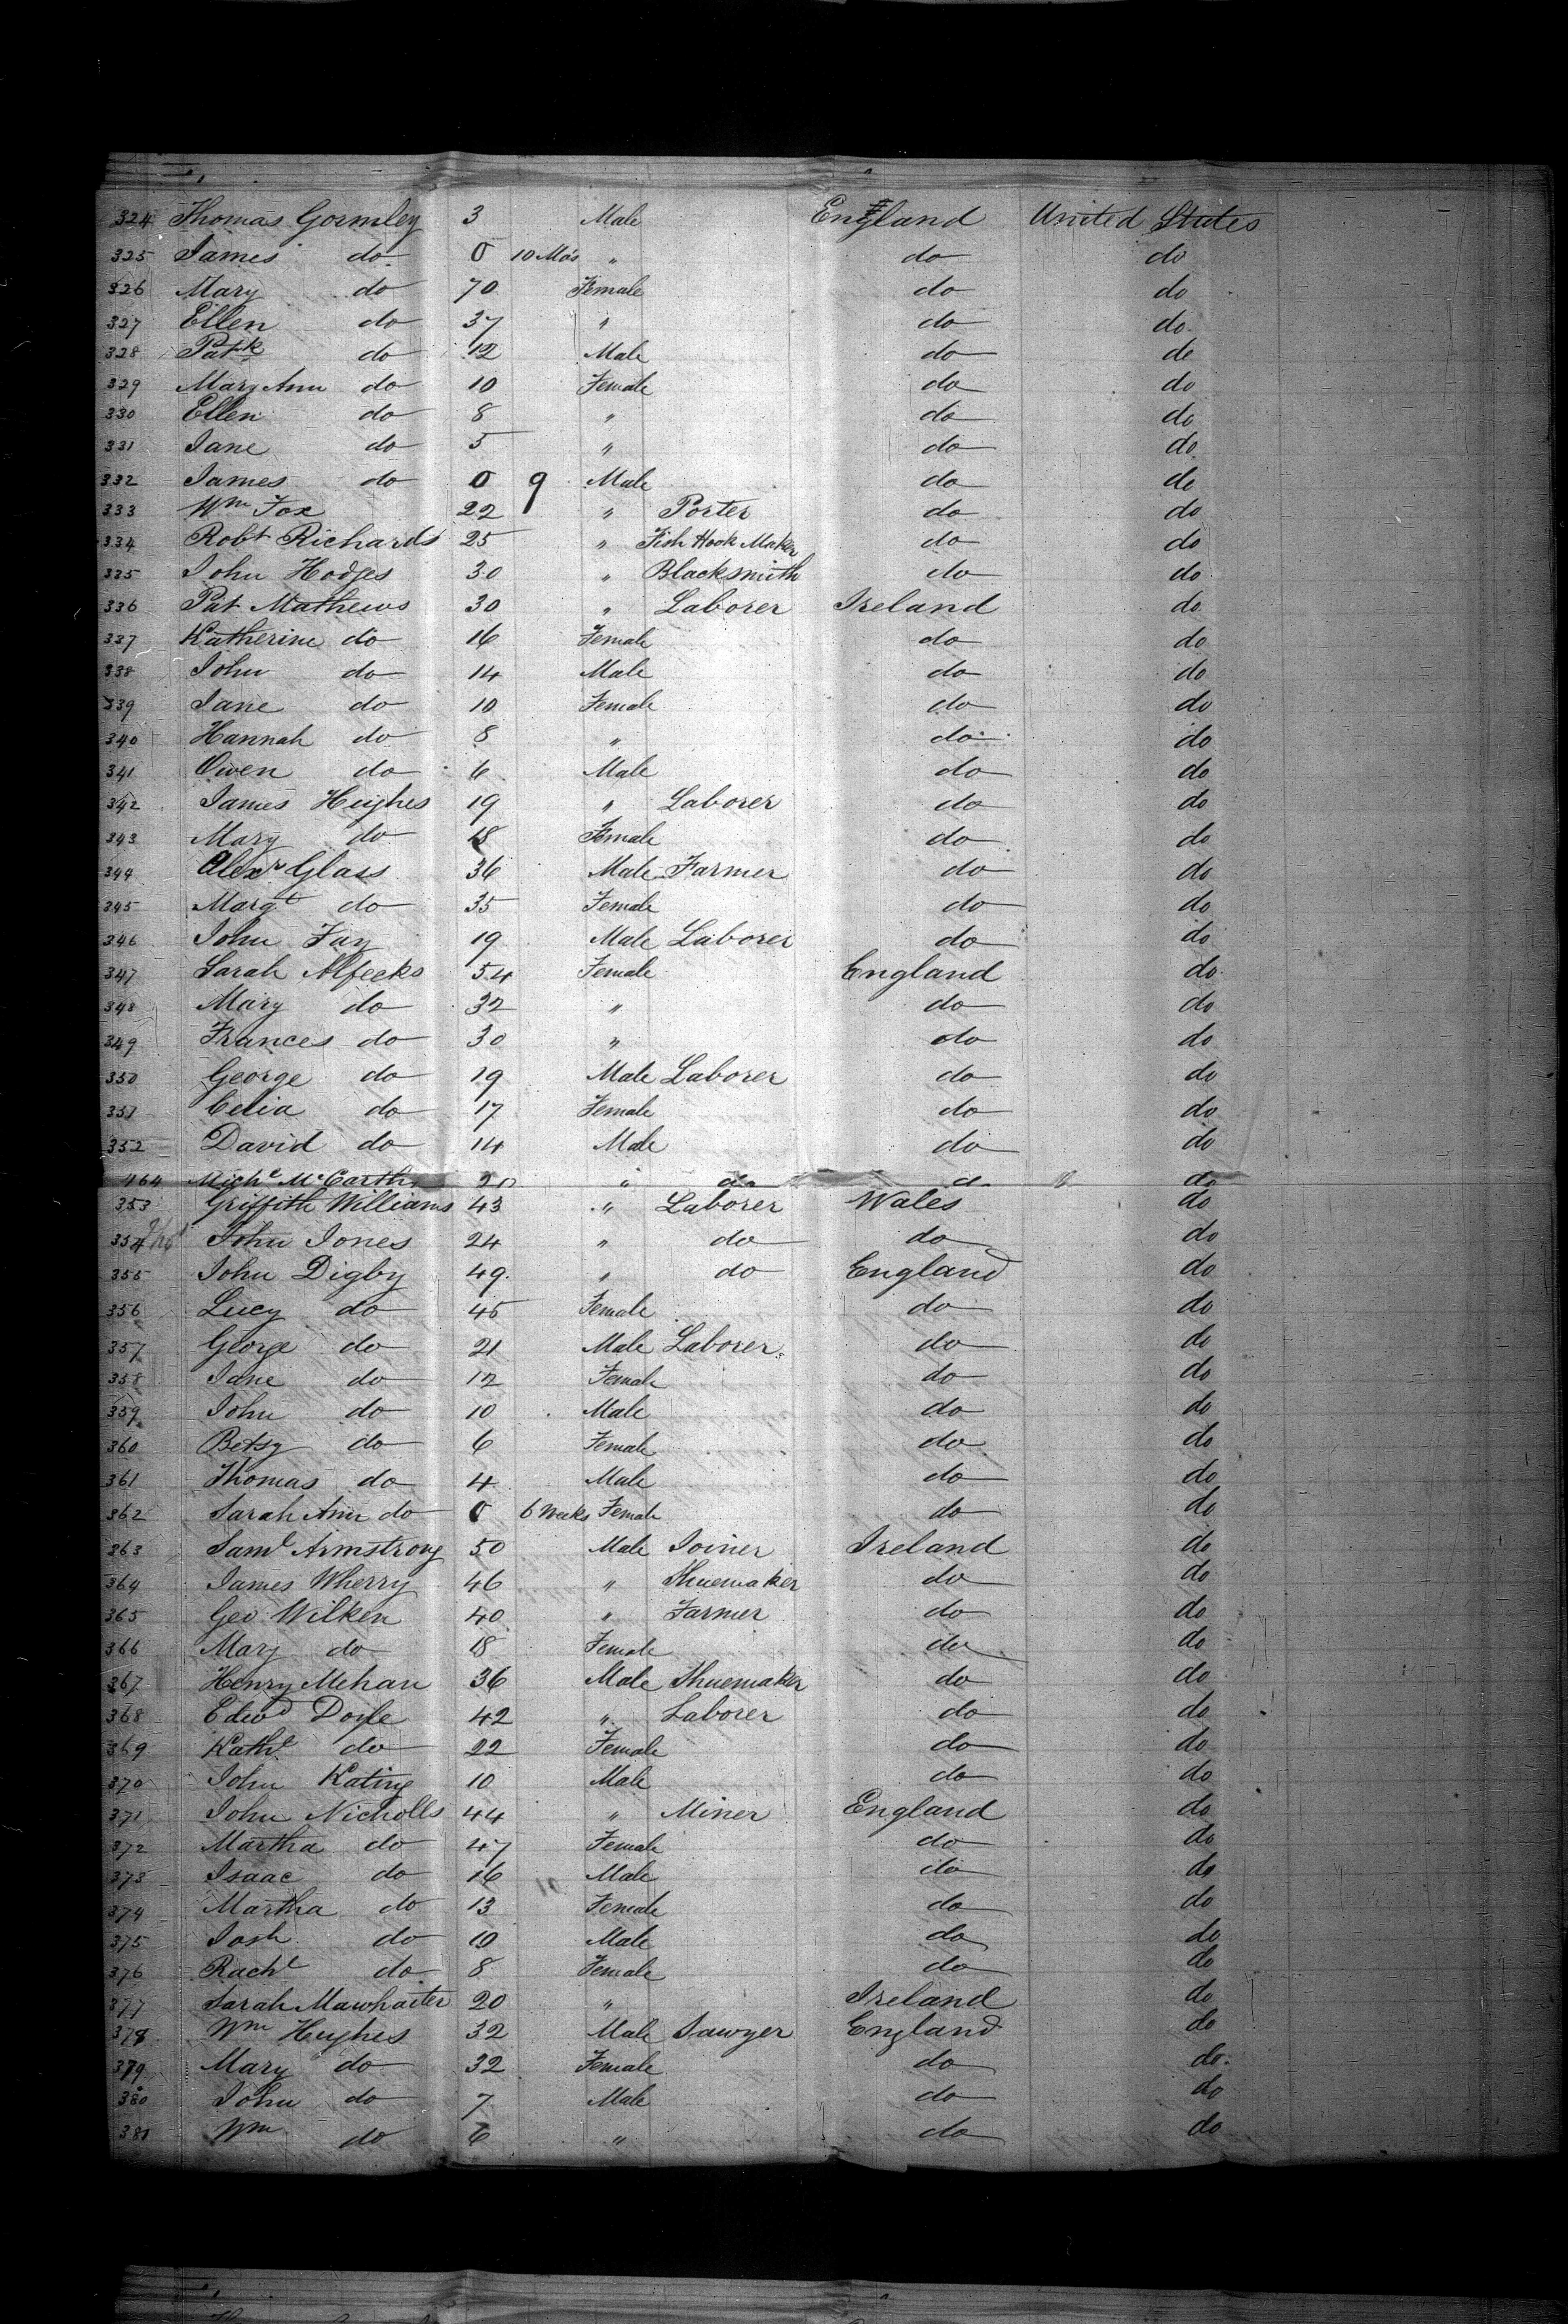 324 Thomas Gormley 3 Male England United States
325 James do 0 10 Mos " do do
326 Mary do 70 Female do do
327 Ellen do 37 " do do
328 Patk do 12 Male do do
329 Mary Ann do 10 Female do do
330 Ellen do 8 " do do
331 Jane do 5 " do do
332 James do 0 9 Male do do
333 Wm Fox 22 " Porter do do
334 Robt Richards 25 " Fish Hook Maker do do
335 John Hodges 30 " Blacksmith do do
336 Pat Mathews 30 " Laborer Ireland do
337 Katherine do 16 Female do do
338 John do 14 Male do do
339 Jane do 10 Female do do
340 Hannah do 8 " do do
341 Owen do 6 Male do do
342 James Hughes 19 " Laborer do do
343 Mary do 18 Female do do
344 Alexr Glass 36 Male Farmer do do
345 Margt do 35 Female do do
346 John Fay 19 Male Laborer do do
347 Sarah 54 Female England do
348 Mary do 32 " do do
349 Frances do 30 " do do
350 George do 19 Male Laborer do do
351 Celia do 17 Female do do
352 David do 14 Male do do
464 Michl McCarth " do do
353 Griffith Williams 43 " Laborer Wales do
354 John Jones 24 " do do do
355 John Digby 49 " do England do
356 Lucy do 45 Female do do
357 George do 21 Male Laborer do do
358 Jane do 12 Female do do
359 John do 10 Male do do
360 Betsy do 6 Female do do
361 Thomas do 4 Male do do
362 Sarah Ann do 0 6 Weeks Female do do
363 Saml Armstrong 50 Male Joiner Ireland do
364 James Wherry 46 " Shuemaker do do
365 Geo Wilken 40 " Farmer do do
366 Mary do 18 Female do do
367 Henry Mehan 36 Male Shuemaker do do
368 Edwd Doyle 42 " Laborer do do
369 Kathe do 22 Female do do
370 John Kating 10 Male do do
371 John Nicholls 44 " Miner England do
372 Martha do 47 Female do do
373 Isaac do 16 Male do do
374 Martha do 13 Female do do
375 Josh do 10 Male do do
376 Rachl do 8 Female do do
377 Sarah Mawhaiter 20 " Ireland do
378 Wm Hughes 32 Male Sawyer England do
379 Mary do 32 Female do do
380 John do 7 Male do do
381 Wm do 6 " do do